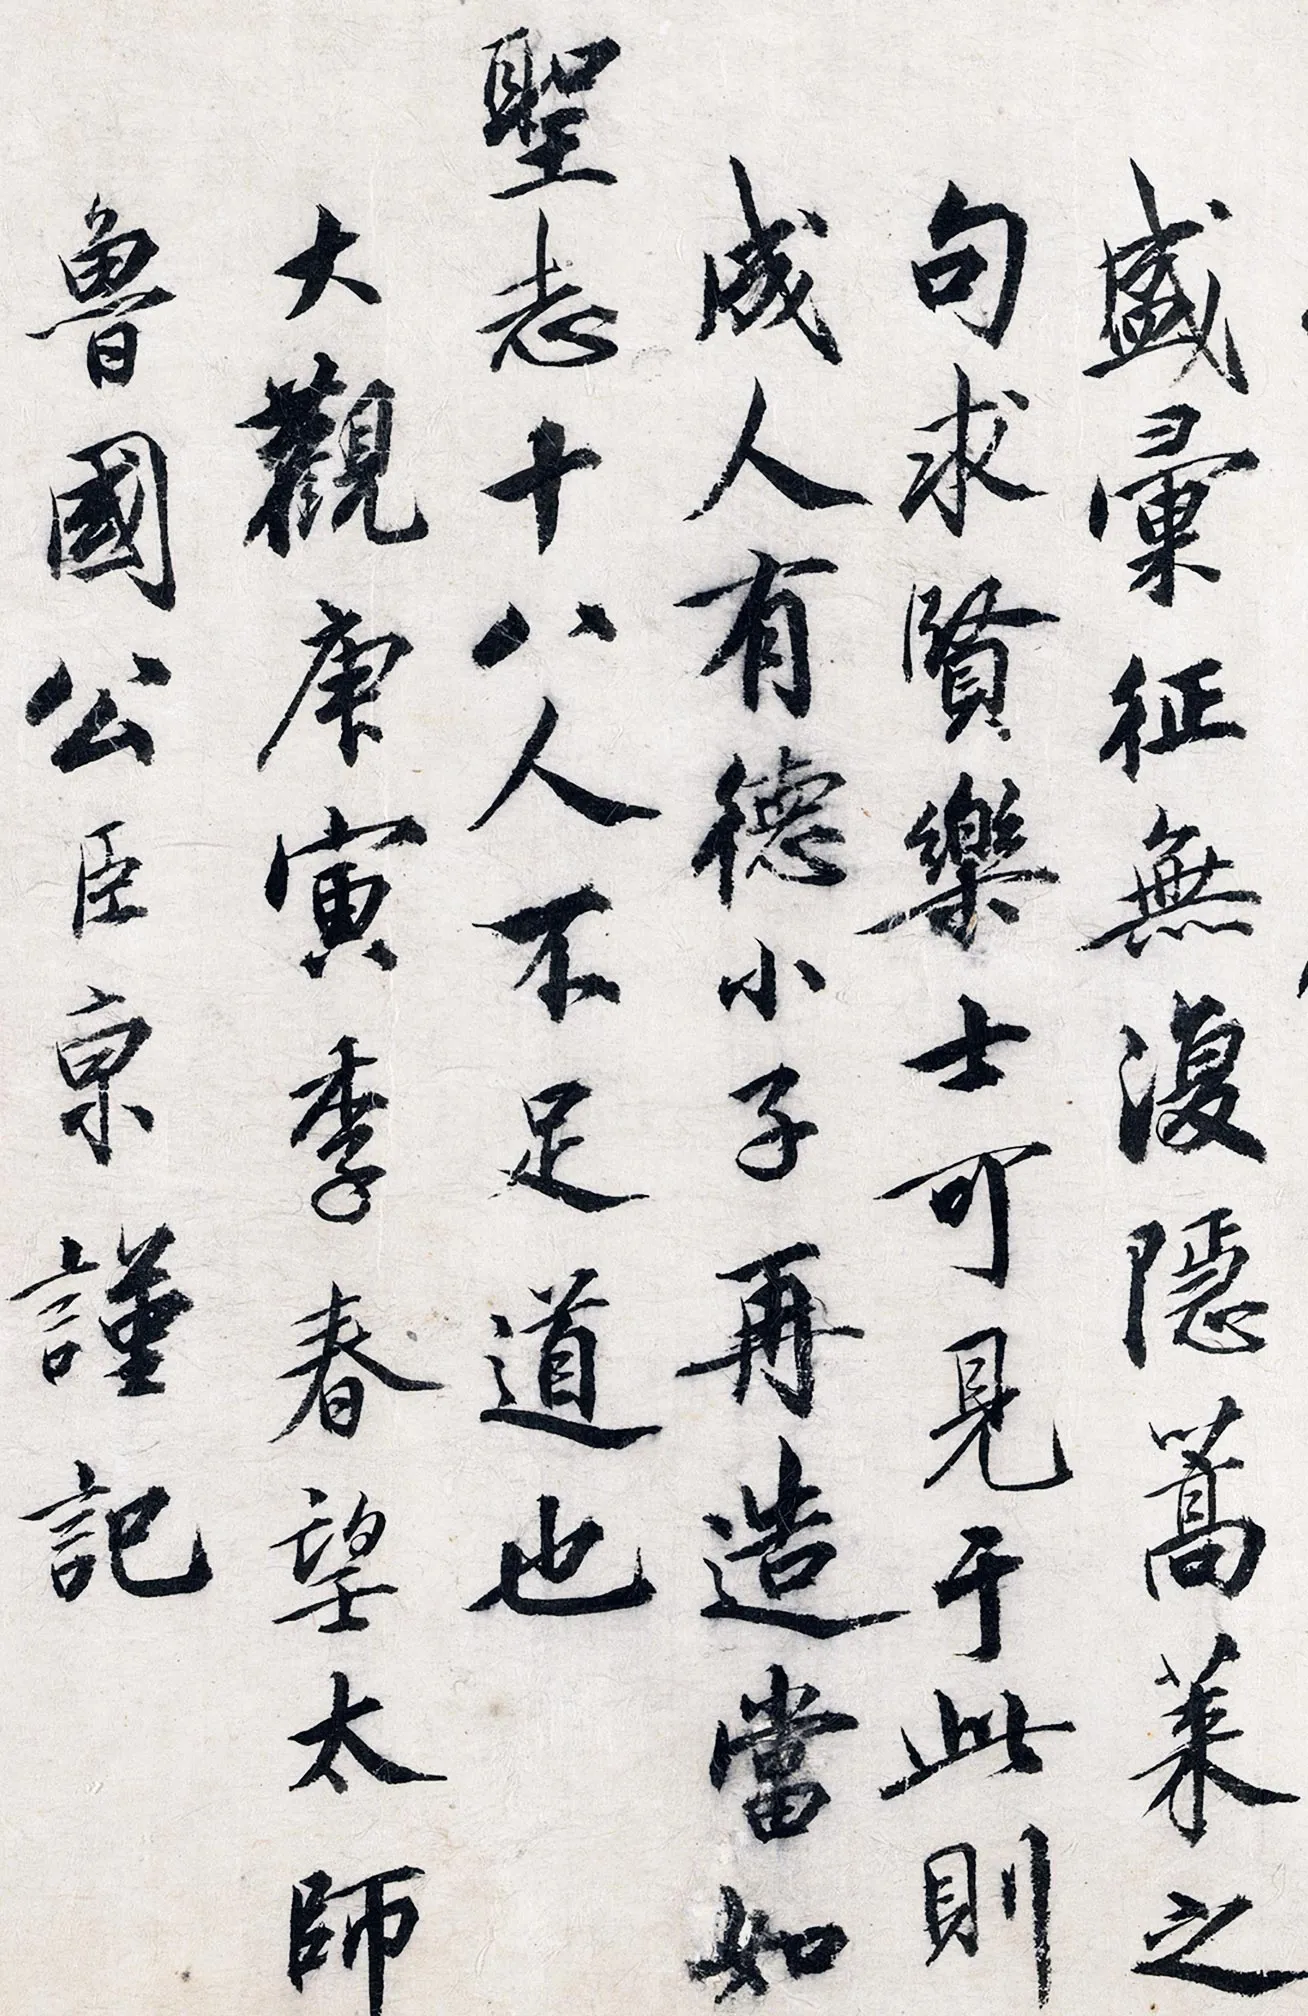 盛彙征無復隱蒿萊之
句求賢樂士可見于此則
成人有德小子再造當如
聖志十八人不足道也
大觀庚寅季春望太師
魯國公臣京謹記